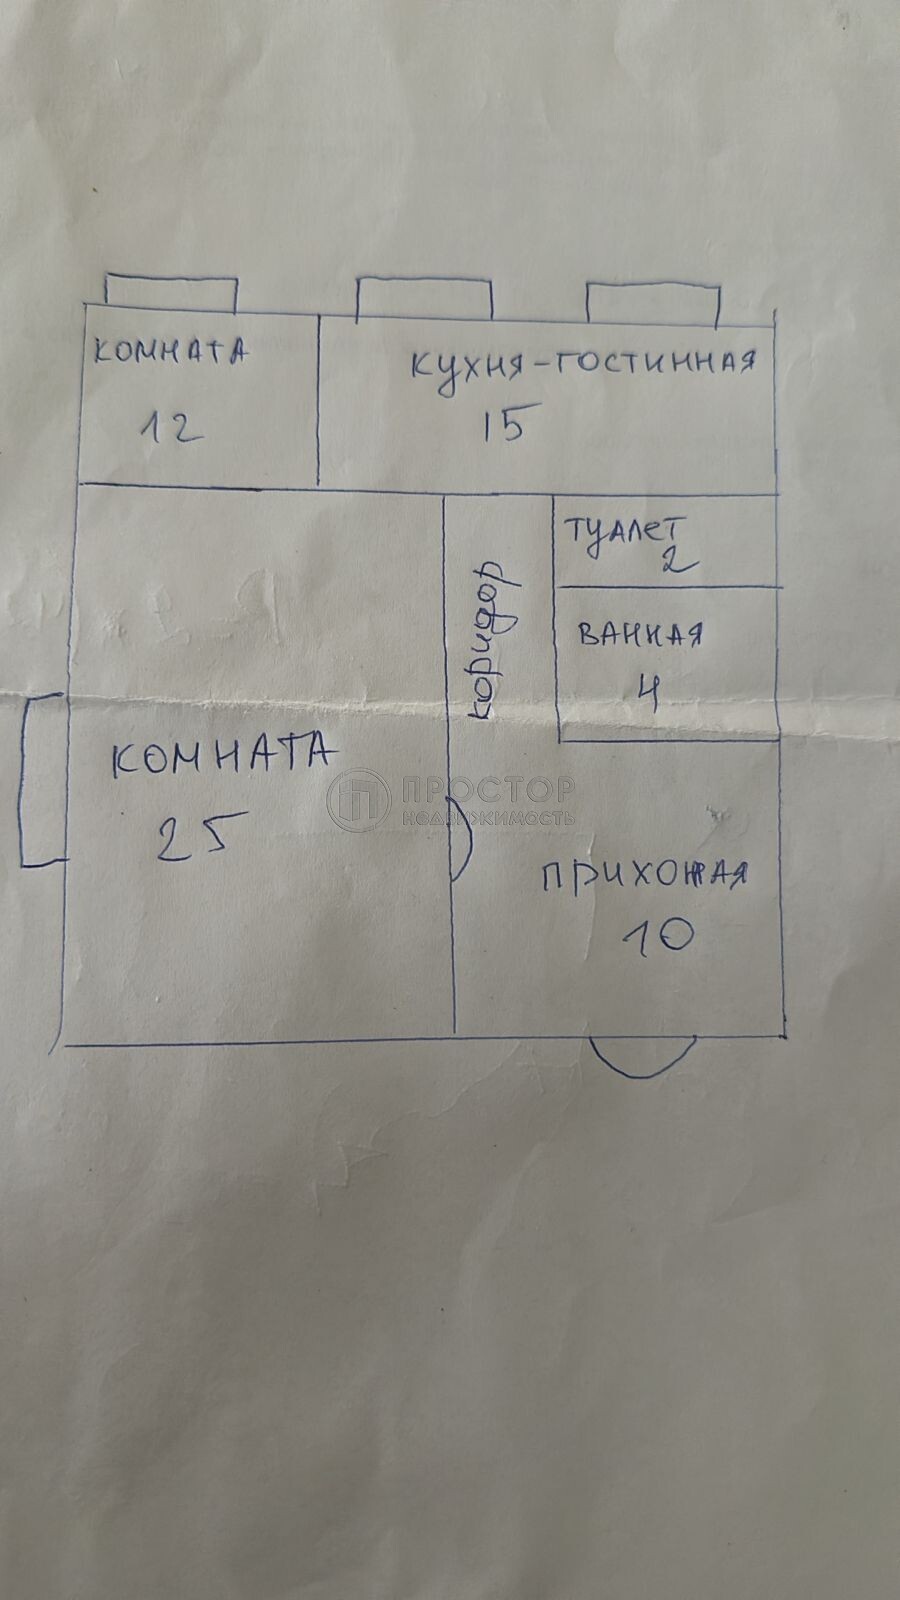 КОМНАТА
12
КУХНЯ-ГОСТИННАЯ
15
ТУАЛЕТ
2
коридор
ВАННАЯ
4
КОМНАТА
25
ПРОСТОР
НЕДВИЖИМОСТЬ
ПРИХОЖАЯ
10